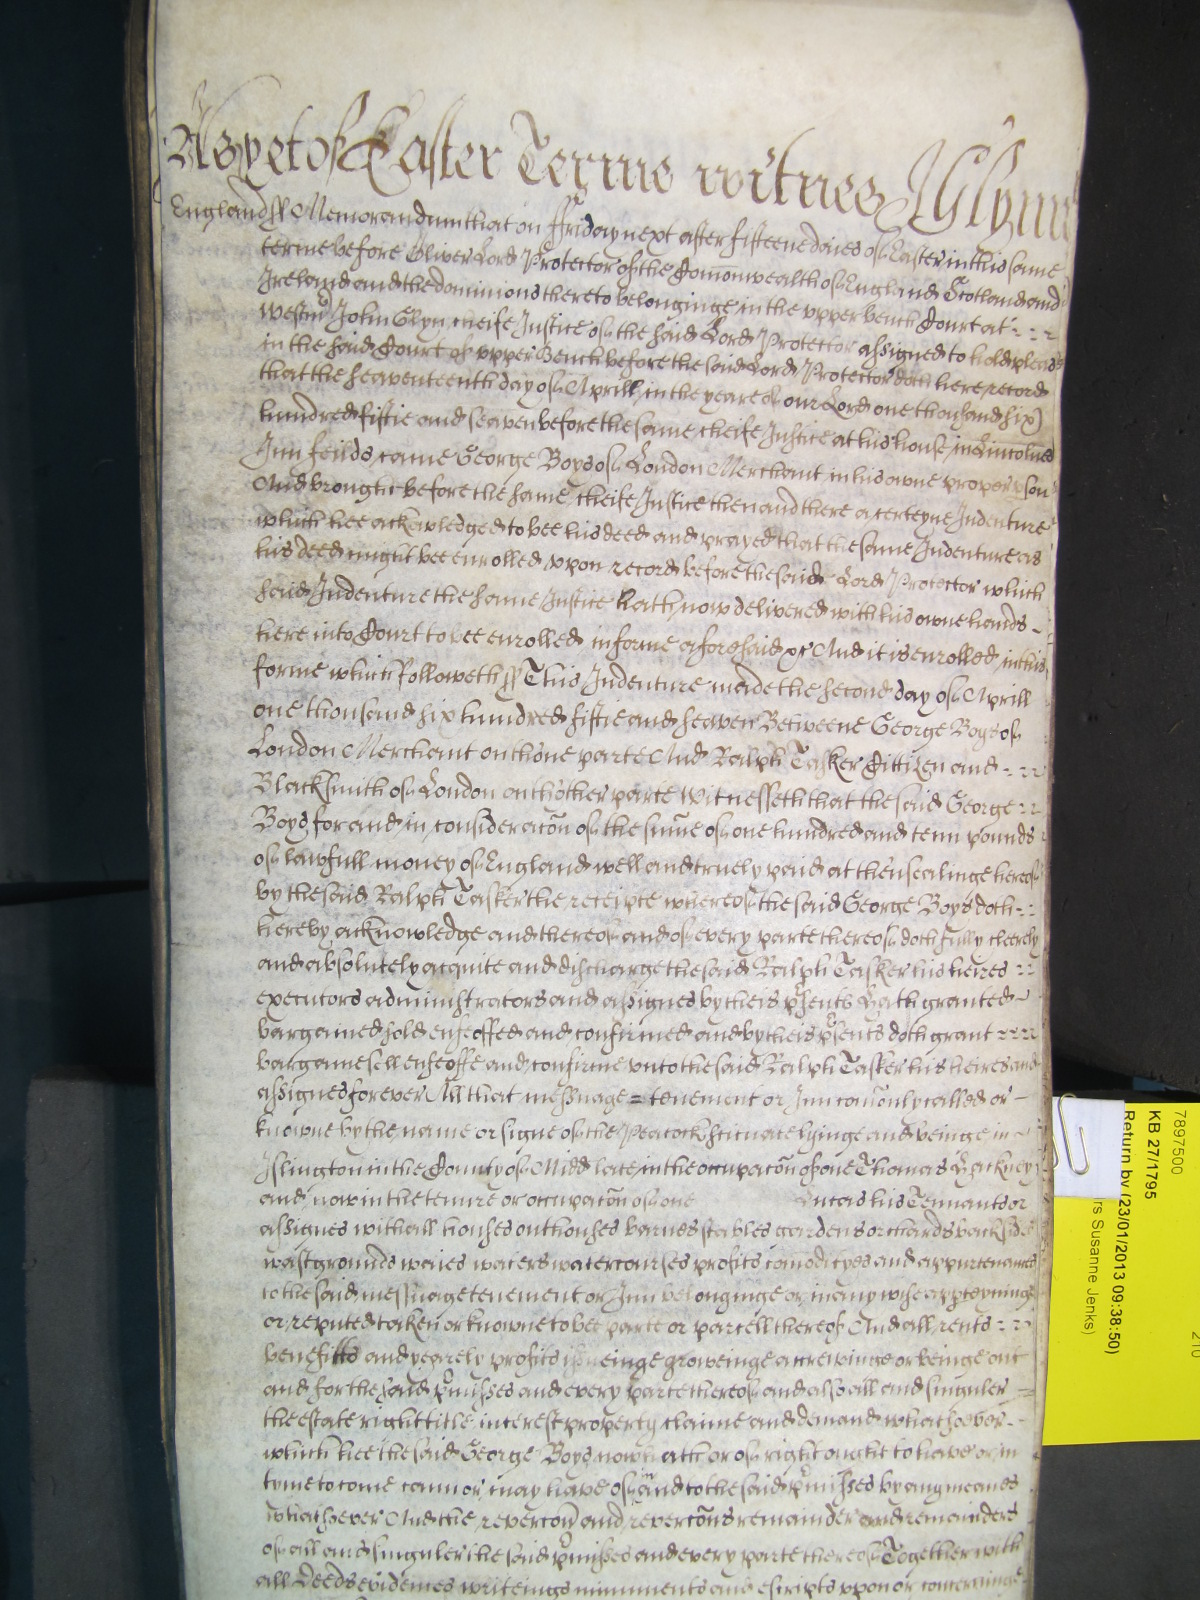 As yet of Easter Terme witnes J Glynn
England ss Memorandum that on ffriday next after fifteene daies of Easter in this same
terme before Oliver Lord Protector of the Comonwealth of England Scotland and
Ireland and the dominions thereto belonginge in the upper bench Court at
Westmr John Glyn cheife Justice of the said Lord Protector assigned to hold pleas
in the said Court of upper Bench before the said Lord Protector doth here record
that the seaventeenth day of Aprill in the yeare of our Lord one thousand six
hundred fiftie and seaven before the same cheife Justice at his house in Lincolnes
Inn feilds came George Boys of London Merchant in his owne proper pson
And brought before the same cheife Justice then and there a certeyne Indenture
which hee acknwledged to bee his deed and prayed that the same Indenture as
his deed might bee enrolled upon record before the said Lord Protector which
said Indenture the same Justice hath now delivered with his owne hands
here into Court to bee enrolled in forme aforesaid &c And it is enrolled in this
forme which followeth ss This Indenture made the second day of Aprill
one thousand six hundred fiftie and seaven Betweene George Boys of
London Merchant on thone parte And Ralph Tasker Cittizen and
Blacksmith of London on thother parte Witnesseth that the said George
Boys for and in consideracõn of the sume of one hundred and tenn pounds
of lawfull money of England well and truely paid at thensealinge hereof
by the said Ralph Tasker the receipte whereof the said George Boys doth
hereby acknowledge and thereof and of every parte thereof doth fully cleerely
and absolutely acquite and discharge the said Ralph Tasker his heires
executors administrators and assignes by theis psents Hath granted
bargained sold enfeoffed and confirmed and by theis psents doth grant
bargaine sell enfeoffe and confirme unto the said Ralph Tasker his heires and
assignes forever All that messuage = tenement or Inn comonly called or
knowne by the name or signe of the Peacock scituate lyinge and beinge in
Islington in the County of Midd late in the occupacõn of one Thomas Hackney
and now in the tenure or occupacõn of one Lucas his Tennants or
assignes with all houses outhouses barnes stables gardens orchards backsides
wast grounds waies waters watercourses profits comodityes and appurtenances
to the said messuage tenement or Inn belonginge or in any wise apperteyninge
or reputed taken or knowne to bee parte or parcell thereof And all rents
benefitts and yearely profits isueinge groweinge accrewinge or beinge out
and for the said pmisses and every parte thereof and also all and singuler
the estate right title interest property claime and demand whatsoever
which hee the said George Boys now hath or of right ought to have or in
tyme to come can or may have of in and to the said pmisses by any meanes
whatsoever And the revercõn and revercõns remainder and remainders
of all and singuler the said pmisses and every parte thereof Together with
all Deeds evidences writeings miniments and escripts upon or concerninge
7897500
KB 27/1795
Return by (23/01/2013 09:38:50)
rs Susanne Jenks)